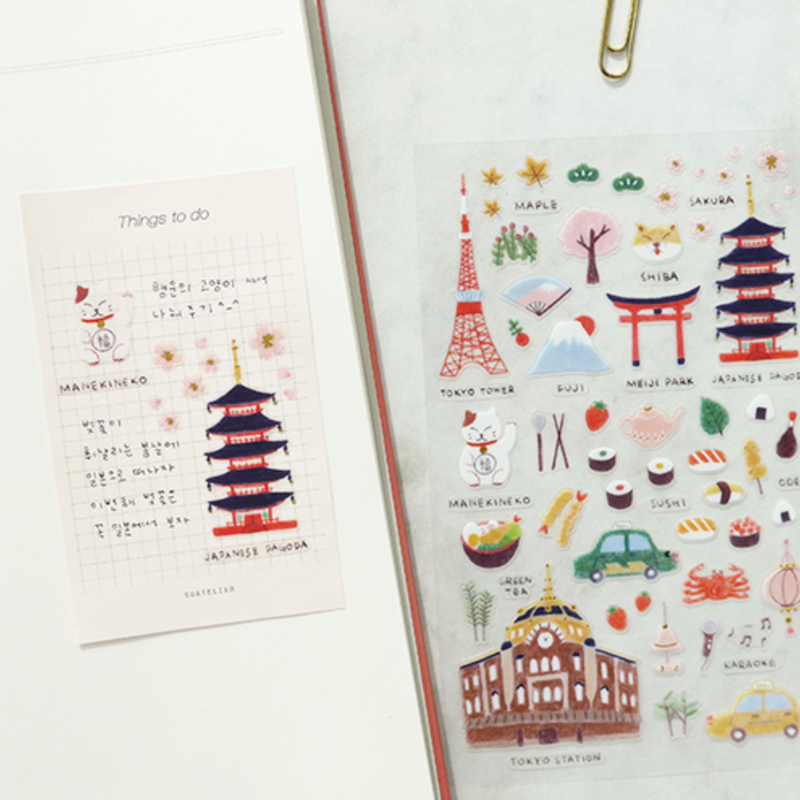 Things to do
행운의 고양이
나눠주기^-^
MANEKINEKO
벚꽃이
휘날리는 봄날에
일본으로 떠나자
이번해 벚꽃은
꼭 일본에서 보자
JAPANESE PAGODA
SUATELIER
MAPLE
SAKURA
SHIBA
TOKYO TOWER
FUJI
MEIJI PARK
JAPANESE PAGOD
MANEKINEKO
SUSHI
ODE
GREEN
TEA
KARAOKE
TOKYO STATION